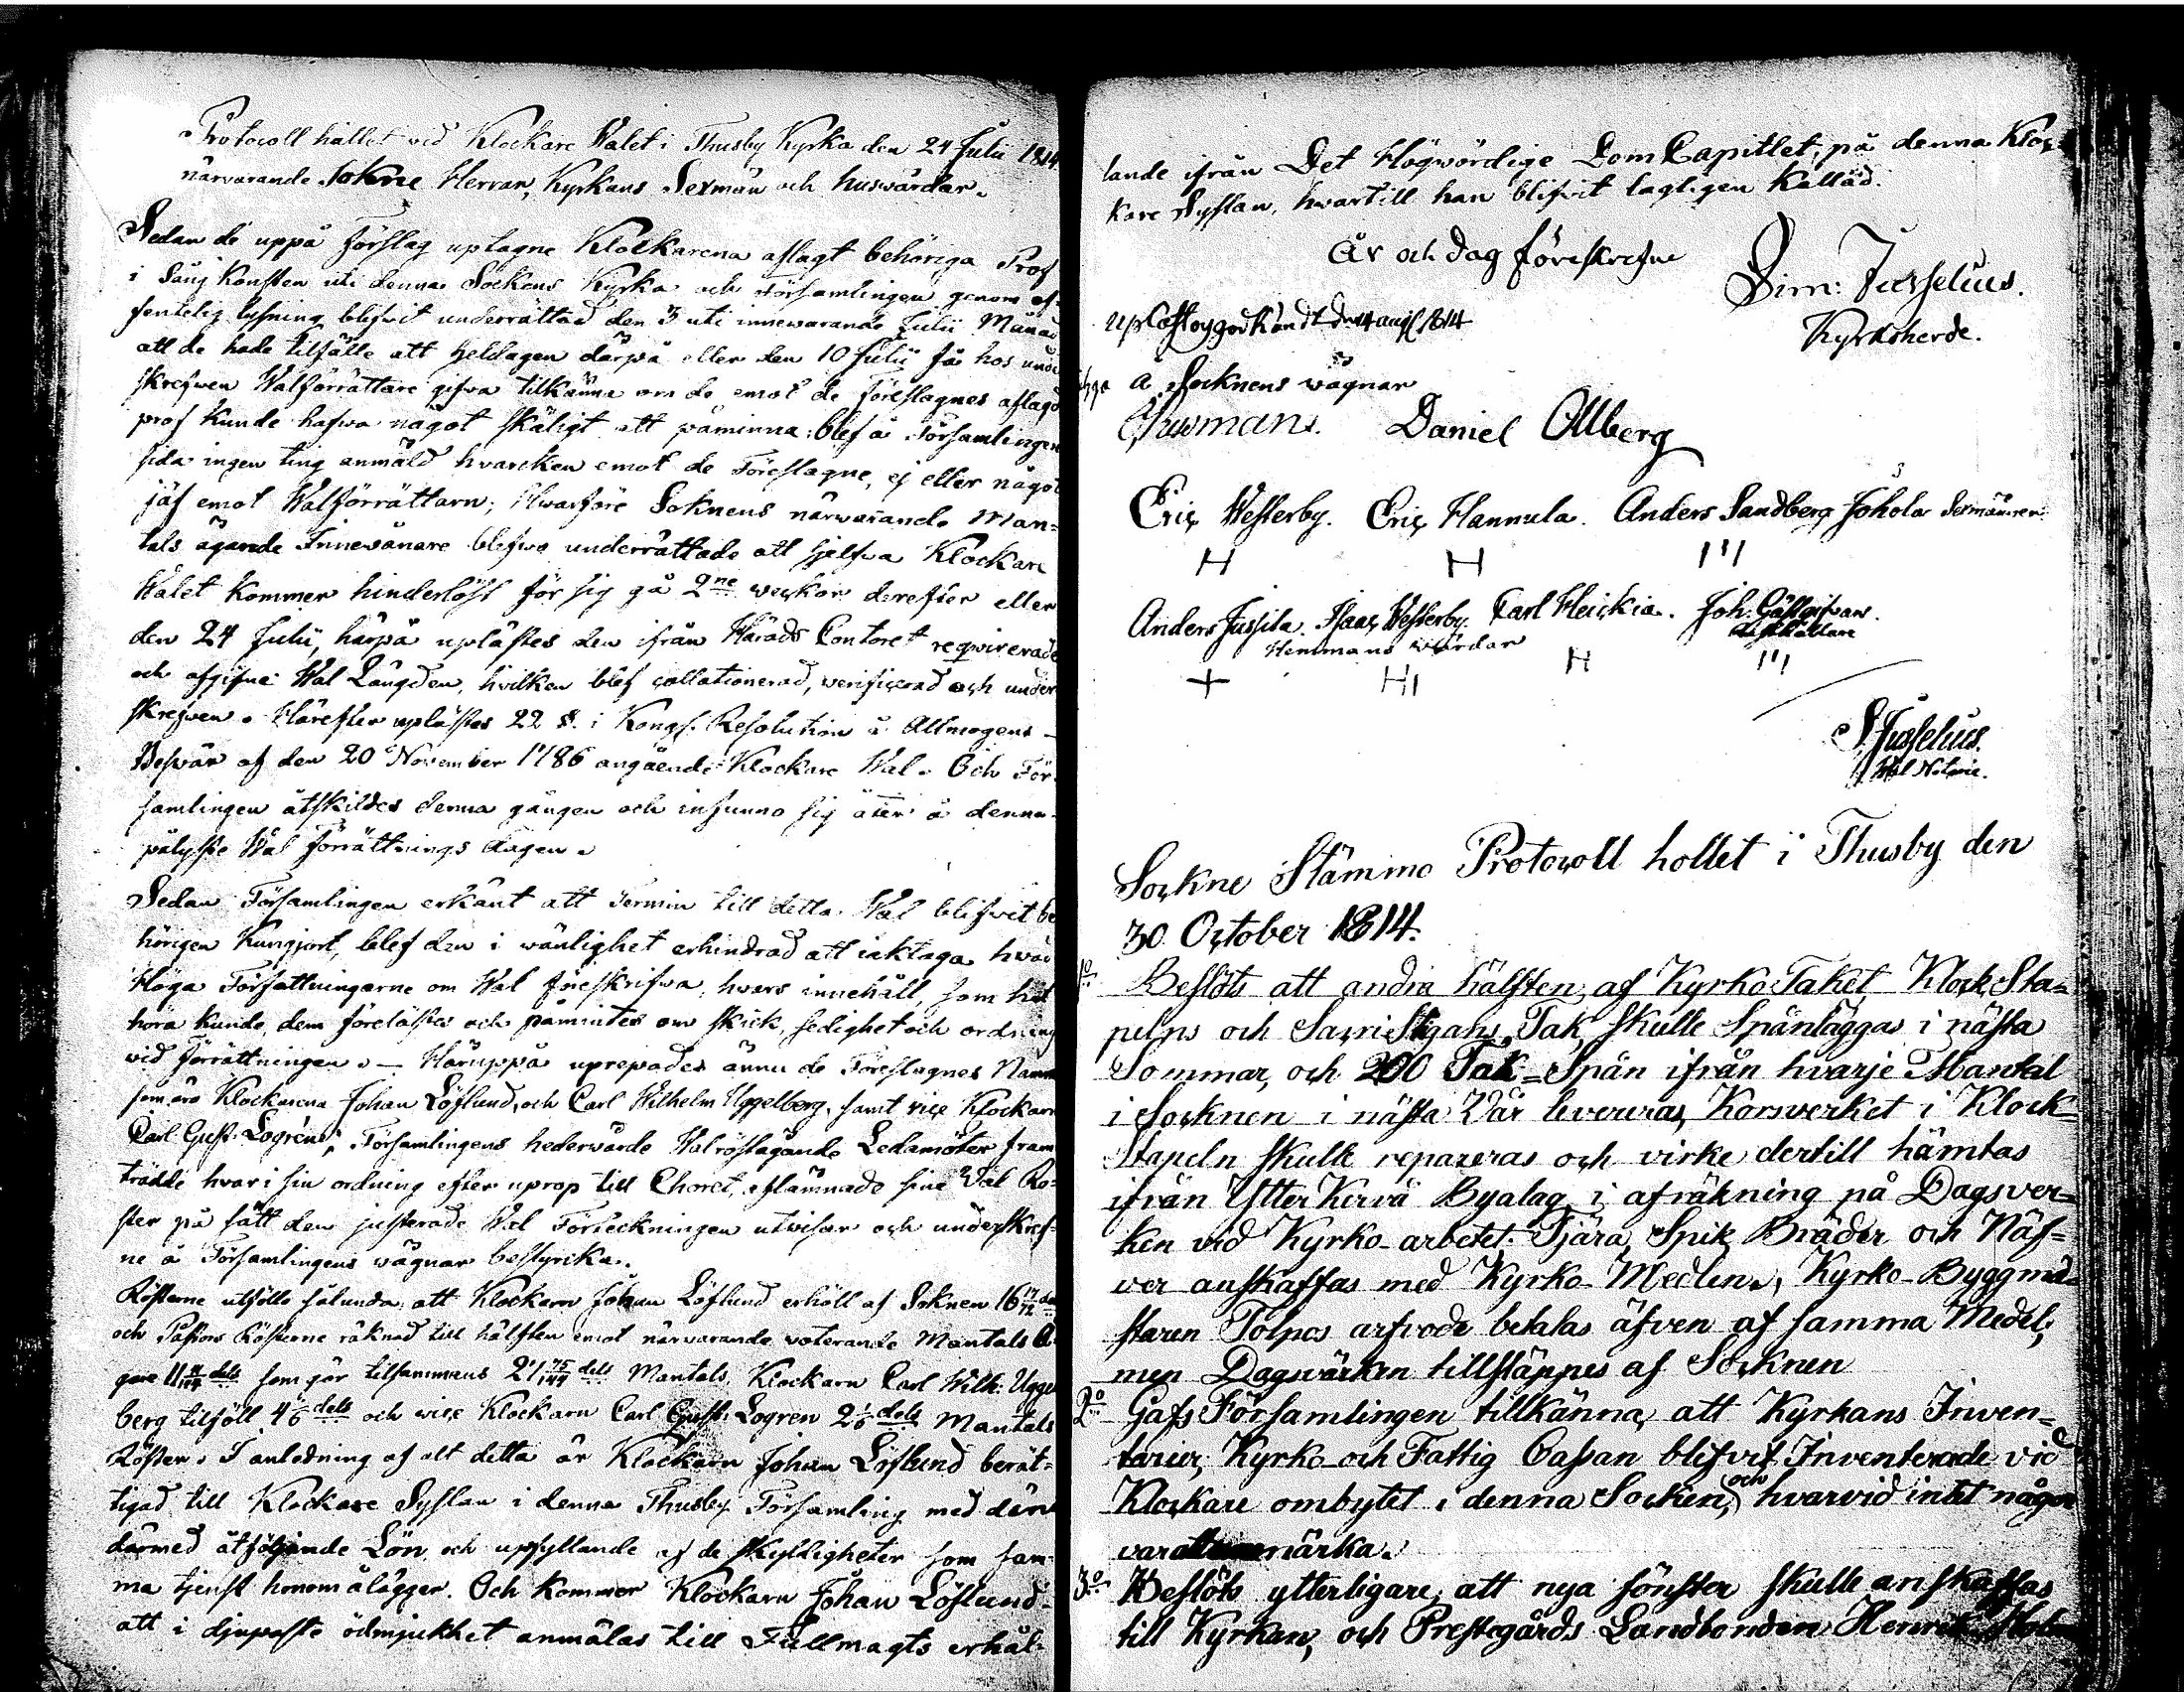 Protocoll hållet vid Klockare Walet i Thusby Kyrka den 24 Julii 1814.
närvarande Sokne Herrar, Kyrkans Sexmän och husvärdar.
Sedan de uppå förslag uptagne Klockarena aflagt behöriga Prof
i Sång konsten uti denna Sockens Kyrka och Församlingen genom of-
fentelig lysning blifvit underrättad den 3 uti innevarande Julii Månad
att de hade tilfälle att heldagen därpå eller den 10 Julii få hos unde
skrefwen Walförrättare gifva tilkänna om de emot de föreslagnes aflagd
prof kunde hafwa något skäligt att påminna: blef å Församlingens
sida ingen ting anmäld hvarcken emot de Föreslagne, ej eller något
jäf emot Walförrättarn; Hwarföre Soknens närwarande Man-
tals ägande Innevånare blefwo underrättade att sjelfva Klockare
Walet kommer hinderlöst för sig gå 2ne veckor derefter eller
den 24 Julii, härpå uplästes den ifrån Härads Contoret reqvirerade
och afgifne Wal Längden, hvilken blef collationerad, verificerad och under
skrefwen. Härefter uplästes 22 §. i Kongl. Resolution å Allmogens
Beswär af den 20 November 1786 angående Klockare Wal. Och För-
samlingen åtskildes denna gången och infunno sig åter å denna
pålyste Wal Förrättnings dagen.
Sedan Församlingen erkänt att Termin till detta Wal blifvit be
hörigen Kungjort, blef den i wänlighet erhindrad att iaktaga hvad
Höga Författningarne om Wal föreskrifva, hvars innehåll, som hit
höra kunde, dem förelästes och påmintes om skick, sedighet och ordning
vid Förrättningen. — Häruppå uprepades ännu de Föreslagnes Namn
som äro Klockarena Johan Löflund, och Carl Wilhelm Uggelberg, samt vice Klockarn
Carl Gust. Logrén; Församlingens hedervärde Walröstägande Ledamöter fram
trädde hvar i sin ordning efter uprop till Choret, aflämnade sine Wal Rö-
ster på sätt den justerade Wal Förteckningen utvisar och underskref-
ne å Församlingens vägnar bestyrka.
Rösterne utföllo sålunda, att Klockarn Johan Löflund erhöll af Soknen 16 17/72 del
och Pastors Rösterne räknad till hälften emot närvarande voterande Mantals Ä-
gare 11 dels som gör tilsammans 27 75/144 dels Mantals, Klockarn Carl Wilh: Uggel
berg tilföll 4 1/6 dels och vice Klockarn Carl Gust: Logren 2 1/6 dels Mantals
Röster. I anledning af alt detta är Klockarn Johan Löflund berät-
tigad till Klockare Sysslan i denna Thusby Församling med den
därmed åtföljande Lön, och upfyllande af de skyldigheter som sam-
ma tjenst honom ålägger. Och kommer Klockarn Johan Löflund
att i djupaste ödmjukhet anmälas till Fullmagts erhål-
lande ifrån Det Högwördige DomCapitlet, på denna Kloc-
kare Sysslan, hwartill han blifvit lagligen kallad.
År och dag föreskrefne
Sim: Jusselius.
Kyrkoherde.
Upläst og godkändt den 14 aug 1814
å Socknens vägnar
Daniel Allberg
Eric Westerby. Eric Hannula. Anders Sandberg Johola Sexmännen
H H 111
Anders Jussila. Isaac Westerby. Carl Heickia. Joh: Gästgifvars
Hemmans Wärdar
+ H1 H 111
S. Jusselius.
Wal Notarie.
Sockne Stämmo Protocoll hollet i Thusby den
30 October 1814.
1o Beslöts att andra hälften af Kyrko Taket, Klock Sta-
pelns och Sacristigans Tak skulle Spånläggas i nästa
Sommar, och 200 Tak-Spån ifrån hvarje Mantal
i Socknen i nästa Vår levereras, Korsverket i Klock-
Stapeln skulle repareras och virke dertill hämtas
ifrån Ytter Kervå Byalag, i afräkning på Dagsver-
ken vid Kyrko-arbetet. Tjära, Spik, Bräder och Näf-
ver anskaffas med Kyrko-Medlen, Kyrko-Byggmä-
staren Tolpos arfvode betalas äfven af samma Medel,
men Dagsvärken tillsläppes af Socknen
2o Gafs Församlingen tillkänna, att Kyrkans Inven-
tarier, Kyrko och Fattig Cassan blifvit Inventerade vid
Klockare ombytet i denna Socken, och hvarvid intet något
var märka.
3o Beslöts ytterligare, att nya fönster skulle anskaffas
till Kyrkan, och Prestegårds Landbonden Henrik